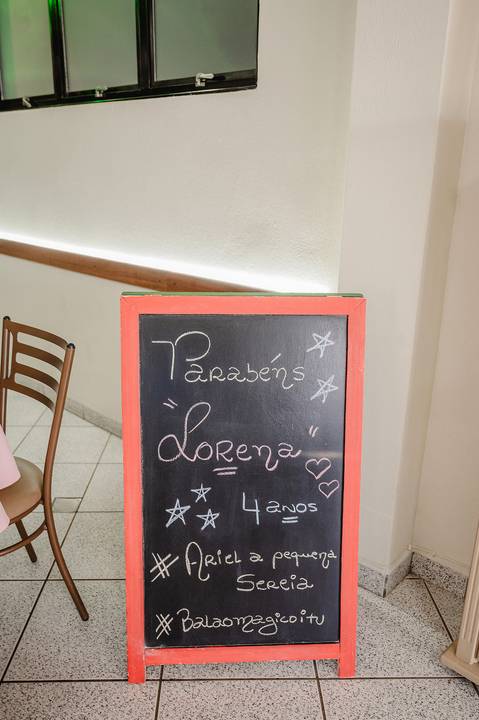 Parabéns
"Lorena"
4 anos
# Ariel a pequena
Sereia
# Balaomagicoitu